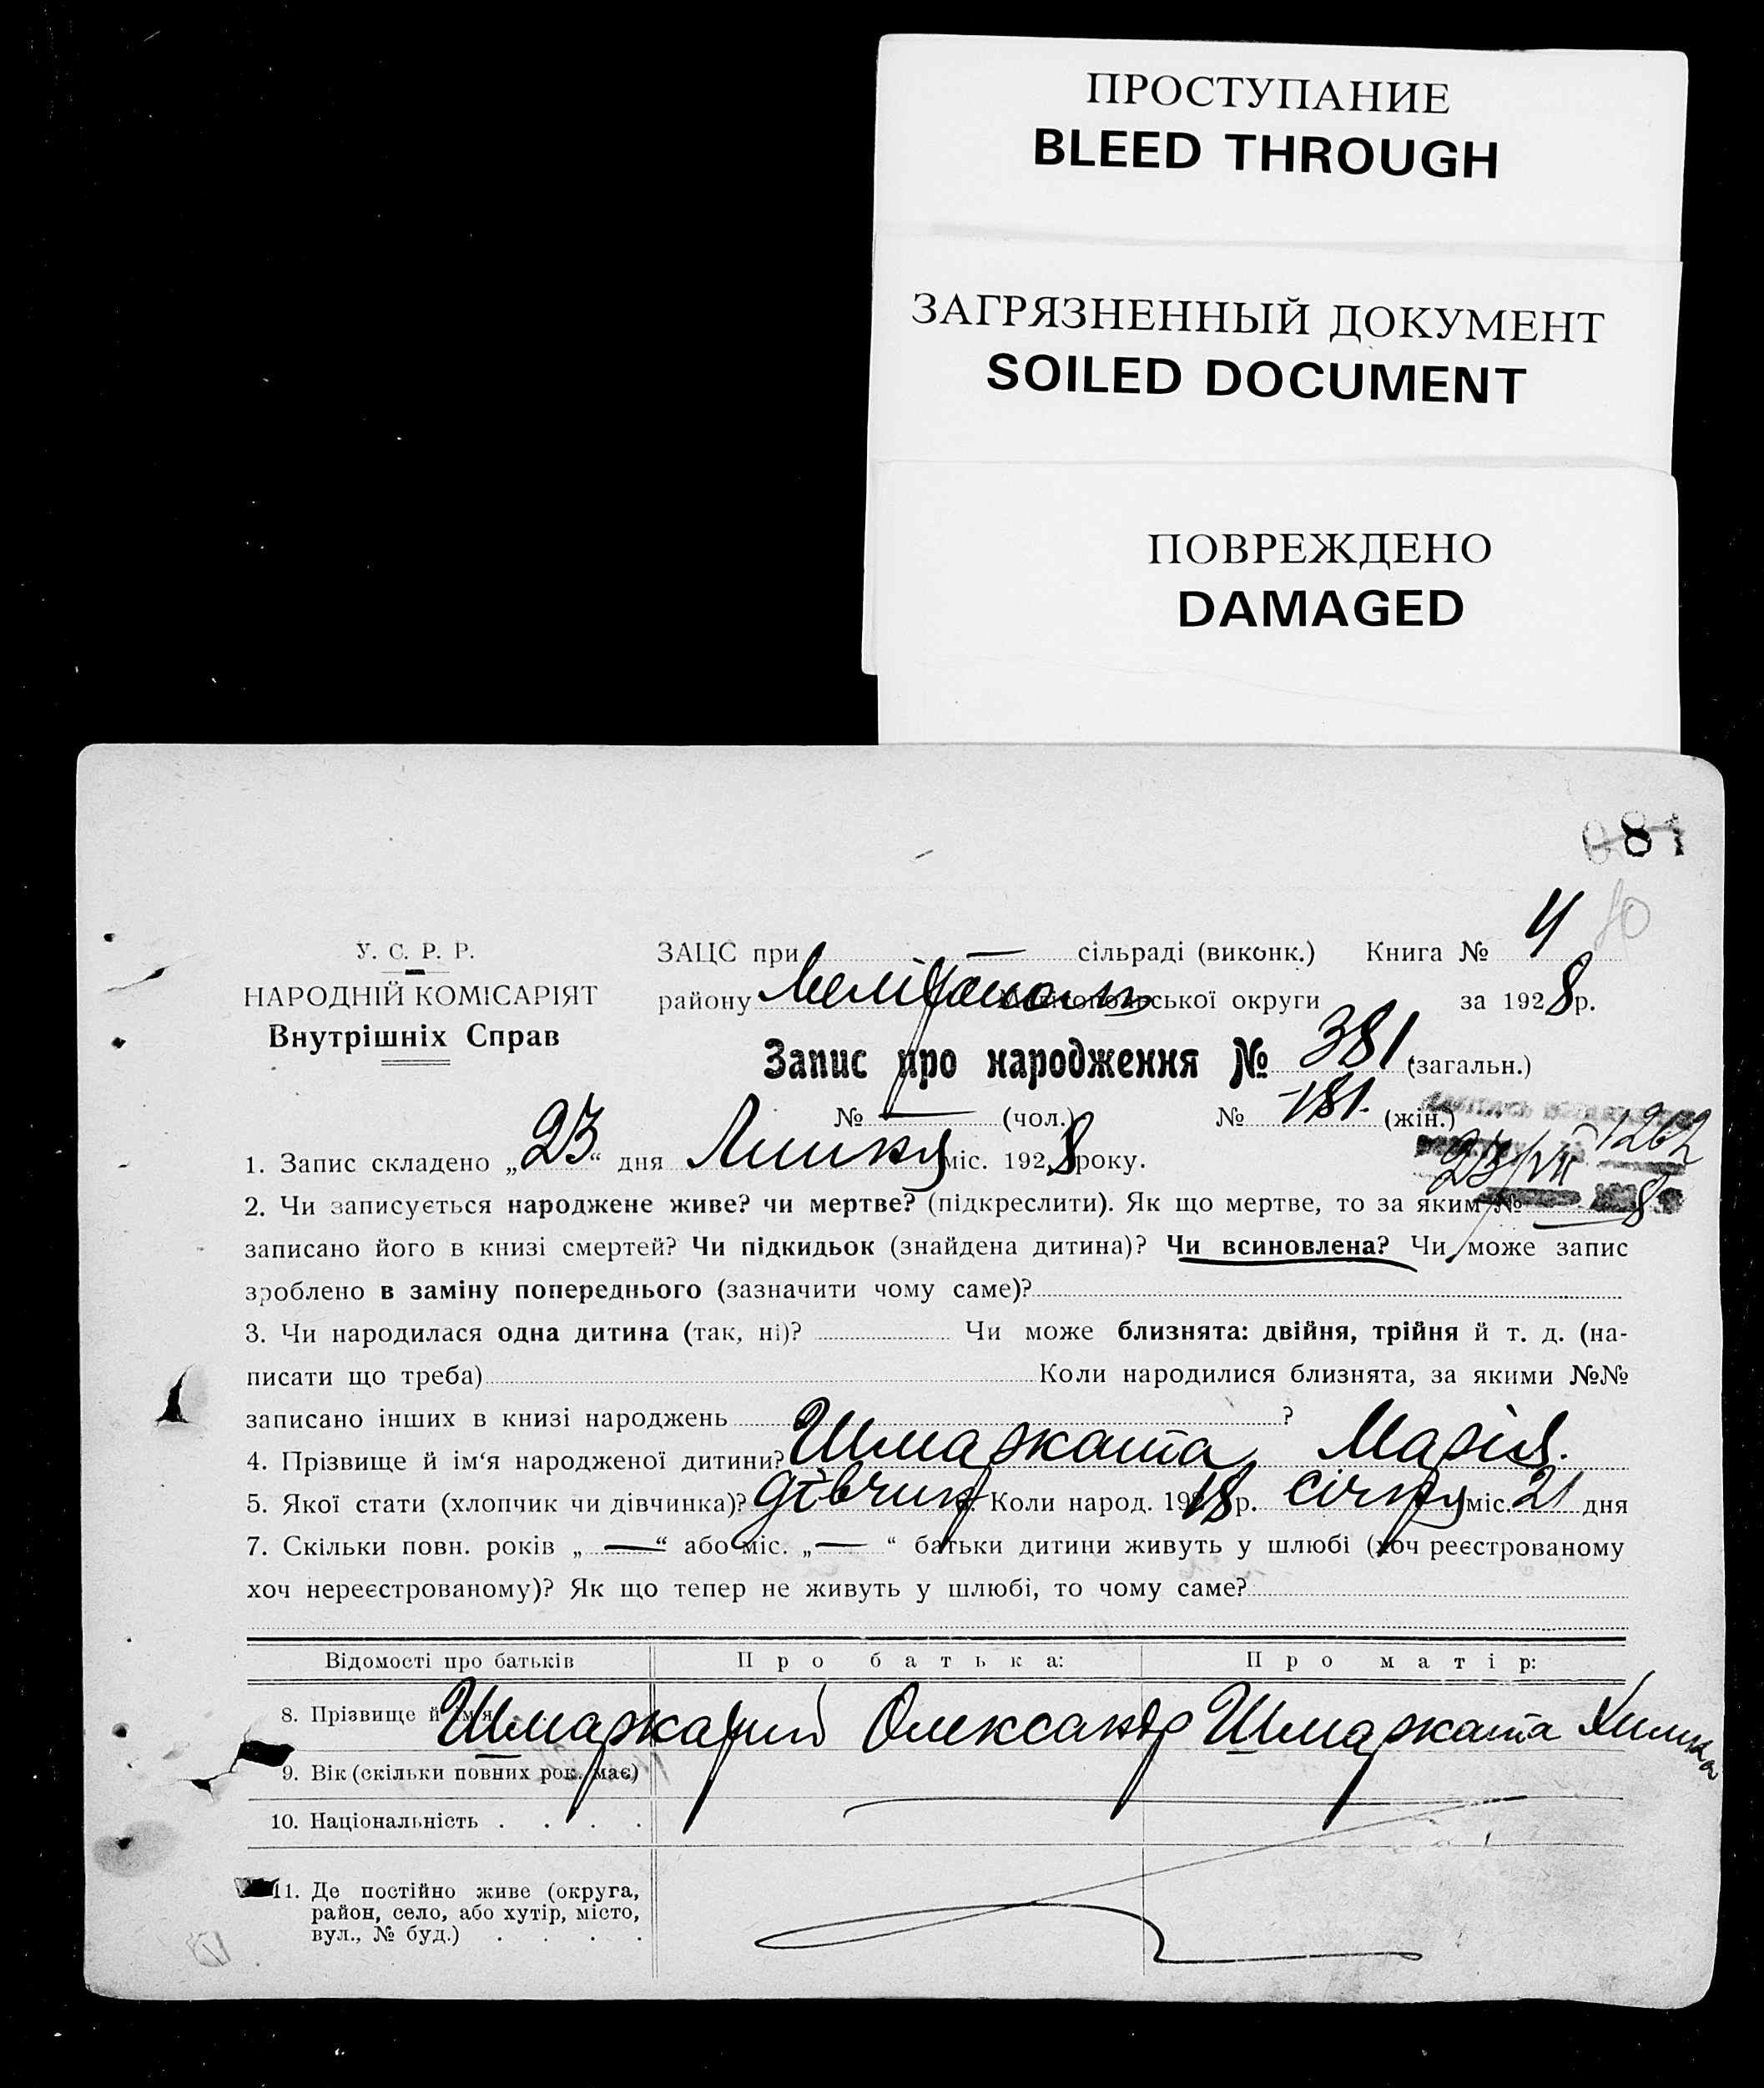 ПРОСТУПАНИЕ
BLEED THROUGH
ЗАГРЯЗНЕННЫЙ ДОКУМЕНТ
SOILED DOCUMENT
ПОВРЕЖДЕНО
DAMAGED
81
4 80
У. С. Р. Р. ЗАЦС при — сільраді (виконк.) Книга №
НАРОДНІЙ КОМІСАРІЯТ району Меліτополь Мелітопольської округи за 1928 р.
Внутрішніх Справ
Запис про народження № 381 (загальн.)
№ — (чол.) № 181. (жін.)
1262
23/VII
8
1. Запис складено „23“ дня Липня міс. 1928 року.
2. Чи записується народжене живе? чи мертве? (підкреслити). Як що мертве, то за яким №
записано його в книзі смертей? Чи підкидьок (знайдена дитина)? Чи всиновлена? Чи може запис
зроблено в заміну попереднього (зазначити чому саме)?
3. Чи народилася одна дитина (так, ні)? Чи може близнята: двійня, трійня й т. д. (на-
писати що треба) Коли народилися близнята, за якими №№
записано інших в книзі народжень ?
4. Прізвище й ім‘я народженої дитини? Шмарката Марія.
5. Якої стати (хлопчик чи дівчинка)? дівчин Коли народ. 1918 р. січня міс. 21 дня
7. Скільки повн. років „ — “ або міс. „ — “ батьки дитини живуть у шлюбі (хоч реєстрованому
хоч нереєстрованому)? Як що тепер не живуть у шлюбі, то чому саме?
Відомості про батьків Про батька: Про матір:
8. Прізвище й ім‘я Шмаркатий Олександр Шмарката
9. Вік (скільки повних рок. має)
10. Національність . . . .
11. Де постійно живе (округа,
район, село, або хутір, місто,
вул., № буд.) . . . .